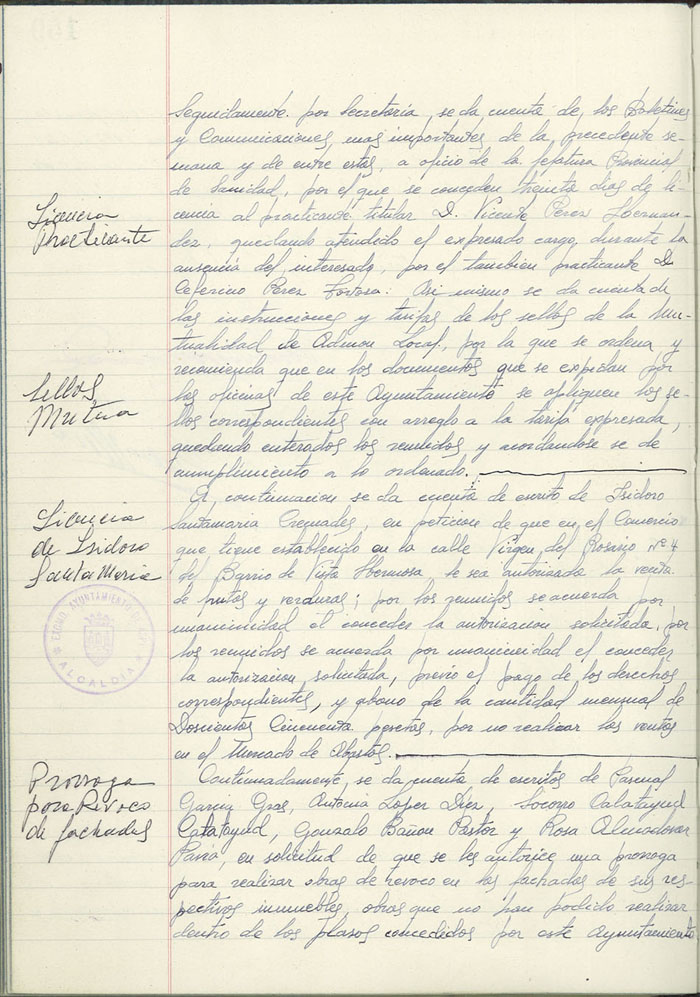 Seguidamente por Secretaría, se da cuenta de los Boletines
y Comunicaciones, mas importantes, de la precedente se-
mana y de entre estas, a oficio de la Jefatura Provincial
de Sanidad, por el que se conceden treinta dias de li-
Licencia
Practicante
cencia al practicante titular D. Vicente Perez Hernan-
dez, quedando atendido el expresado cargo, durante la
ausencia del interesado, por el tambien practicante D.
Ceferino Perez Tortosa. Asi mismo se da cuenta de
las instrucciones y tarifas de los sellos de la Mu-
tualidad de Admon Local, por la que se ordena y
recomienda que en los documentos que se expidan por
Sellos
Mutua
las oficinas de este Ayuntamiento se apliquen los se-
llos correspondientes con arreglo a la tarifa expresada,
quedando enterados los reunidos y acordandose se de
cumplimiento a lo ordenado.
A continuacion se da cuenta de escrito de Isidoro
Licencia
de Isidoro
Santa Maria
Santamaria Cremades, en peticion de que en el Comercio
que tiene establecido en la calle Virgen del Rosario nº 4
del Barrio de Vista Hermosa, le sea autorizada la venta
de frutas y verduras; por los reunidos se acuerda por
unanimidad el conceder la autorizacion solicitada, por
los reunidos se acuerda por unanimidad el conceder
la autorizacion solicitada, previo el pago de los derechos
correspondientes, y abono de la cantidad mensual de
Doscientas Cincuenta pesetas, por no realizar las ventas
en el Mercado de Abastos.
EXCMO. AYUNTAMIENTO DE
ALCALDIA
Prorroga
para Revoco
de fachadas
Continuadamente, se da cuenta de escritos de Pascual
Garcia Gras, Antonia Lopez Diez, Socorro Calatayud
Calatayud, Gonzalo Bañon Pastor y Rosa Almodovar
en solicitud de que se les autorice una prorroga
para realizar obras de revoco en las fachadas de sus res-
pectivos inmuebles, obras que no han podido realizar
dentro de los plasos concedidos por este Ayuntamiento